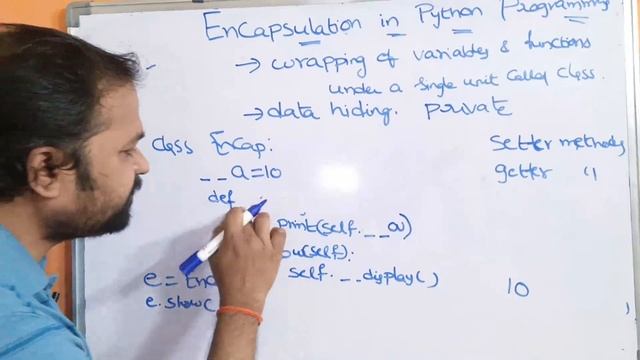 Encapsulation in Python Programming
→ wrapping of variables & functions
under a single unit called class.
→ data hiding. private
class Encap:
__a=10
def
print(self.__a)
ow(self):
self.__display()
e = Enc
e.show(
setter methods
getter "
10